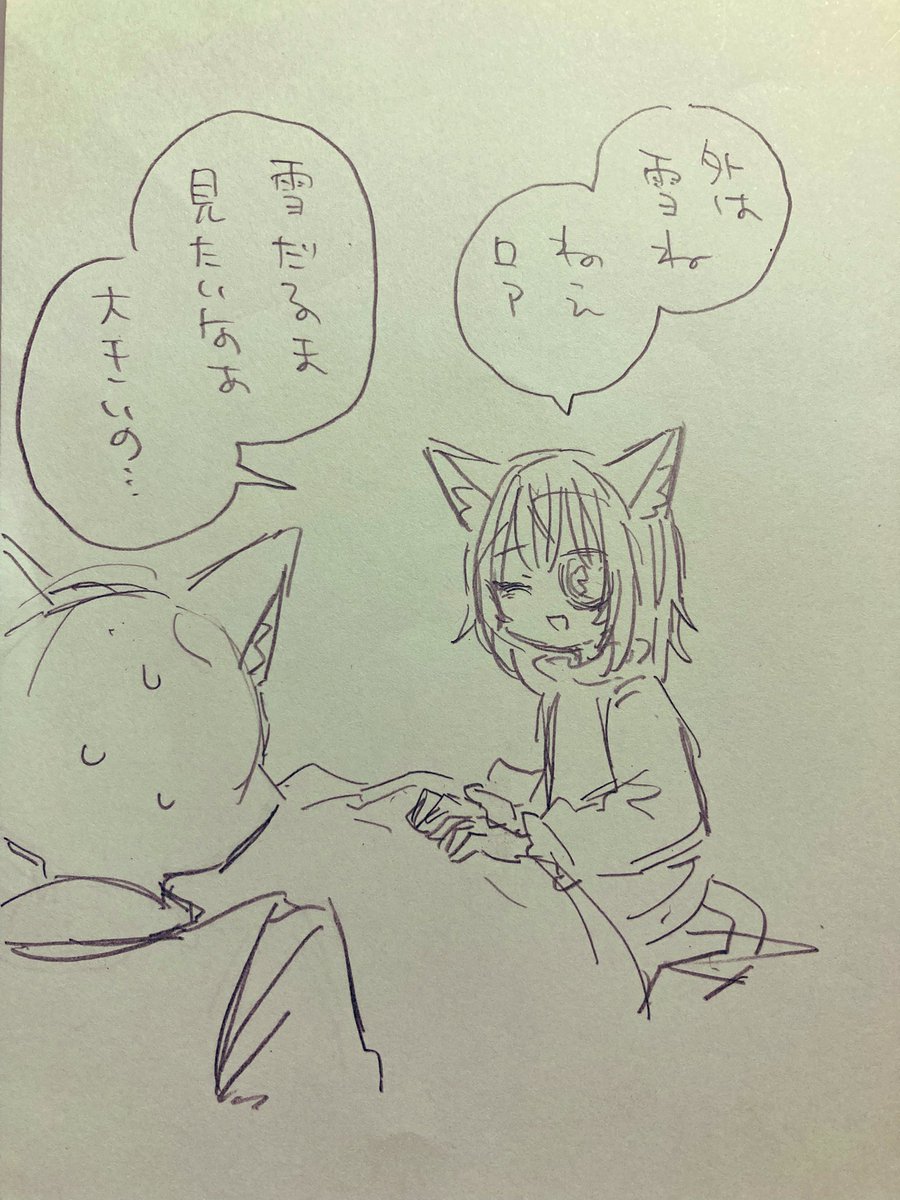 外は
雪ね
ねえ
ロア
雪だるま
見たいなあ
大きいの…